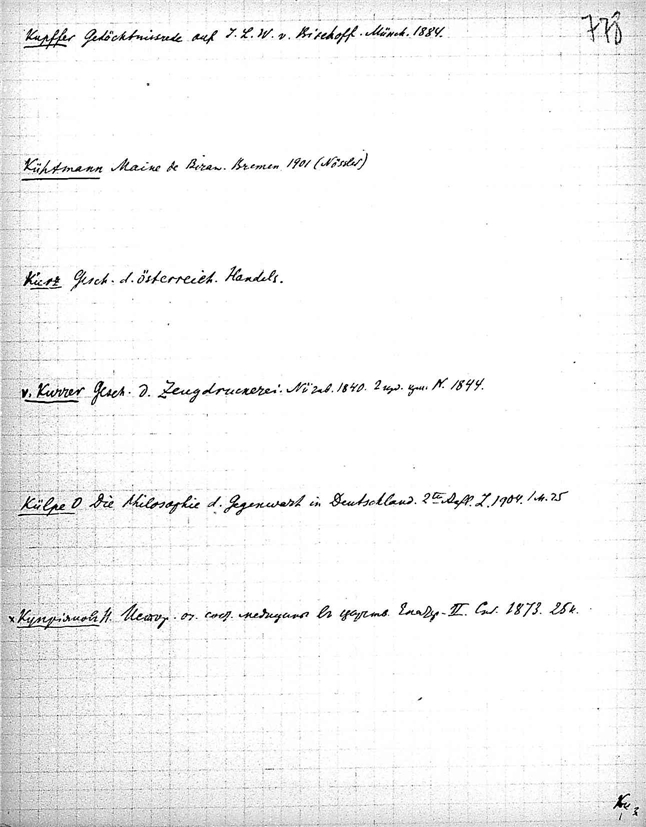 778
Kupffer Gedöchtnisrede auf T. L. W. v. Bischoff. Münch. 1884.
Kühtmann Maine de Biran. Bremen 1901 (Nössler)
Kurz Gesch. d. österreich. Handels.
v. Kurrer Gesch. d. Zeugdruckerei. Nürnb. 1840. 2 изд. N. 1844.
Külpe O Die Philosophie d. Gegenwart in Deutschland. 2te Aufl. L. 1904. 1 M. 25
x Купріяновъ Н. Истор. оч. сост. медицины въ царств. Екатер. II. Спб. 1873. 25 к.